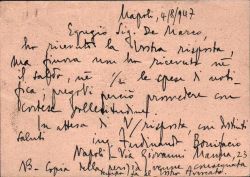 Napoli, 4/8/947
Egregio Sig. De Marco,
ho ricevuto la Vostra risposta,
ma finora non ho ricevuto nè
il saldo, nè le spese di noti
fica; pregovi perciò provvedere con
cortese sollecitudine.
In attesa di V/ risposta, con distinti
saluti
ing. Ferdinando Bonifacio
Napoli - Via Giovanni Manna, 23
NB - Copia della perizia venne consegnata